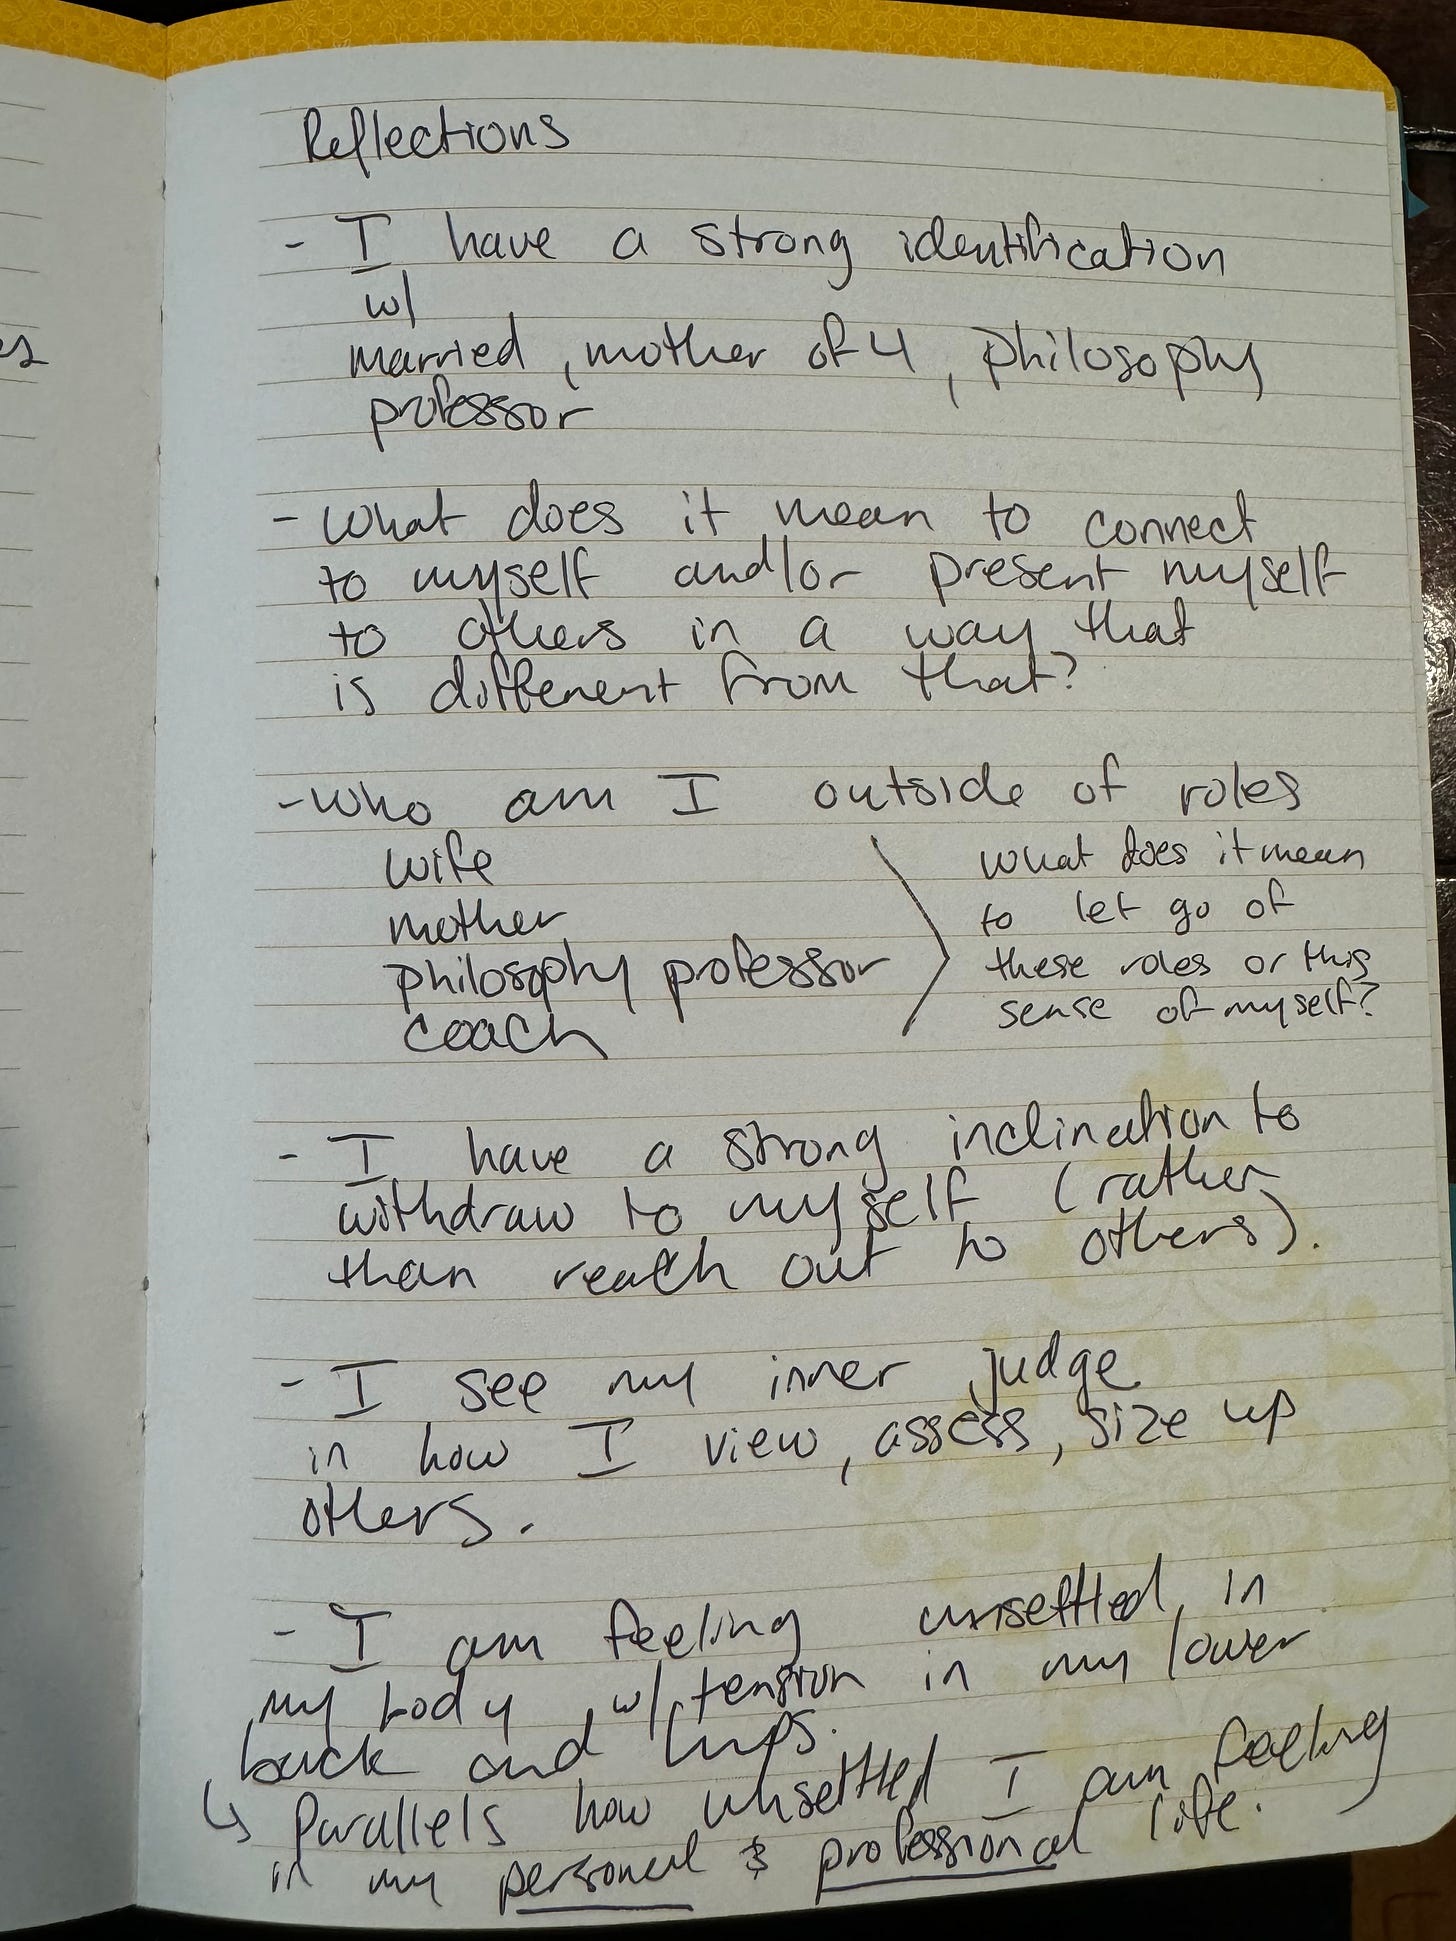 Reflections
- I have a strong identification
w/
married, mother of 4, philosophy
professor
- What does it mean to connect
to myself and/or present myself
to others in a way that
is different from that?
- Who am I outside of roles
wife
mother
philosophy professor
coach
What does it mean
to let go of
these roles or this
sense of myself?
- I have a strong inclination to
withdraw to myself (rather
than reach out to others).
- I see my inner judge
in how I view, assess, size up
others.
- I am feeling unsettled in
my body w/ tension in my lower
back and hips.
↳ Parallels how unsettled I am feeling
in my personal & professional life.